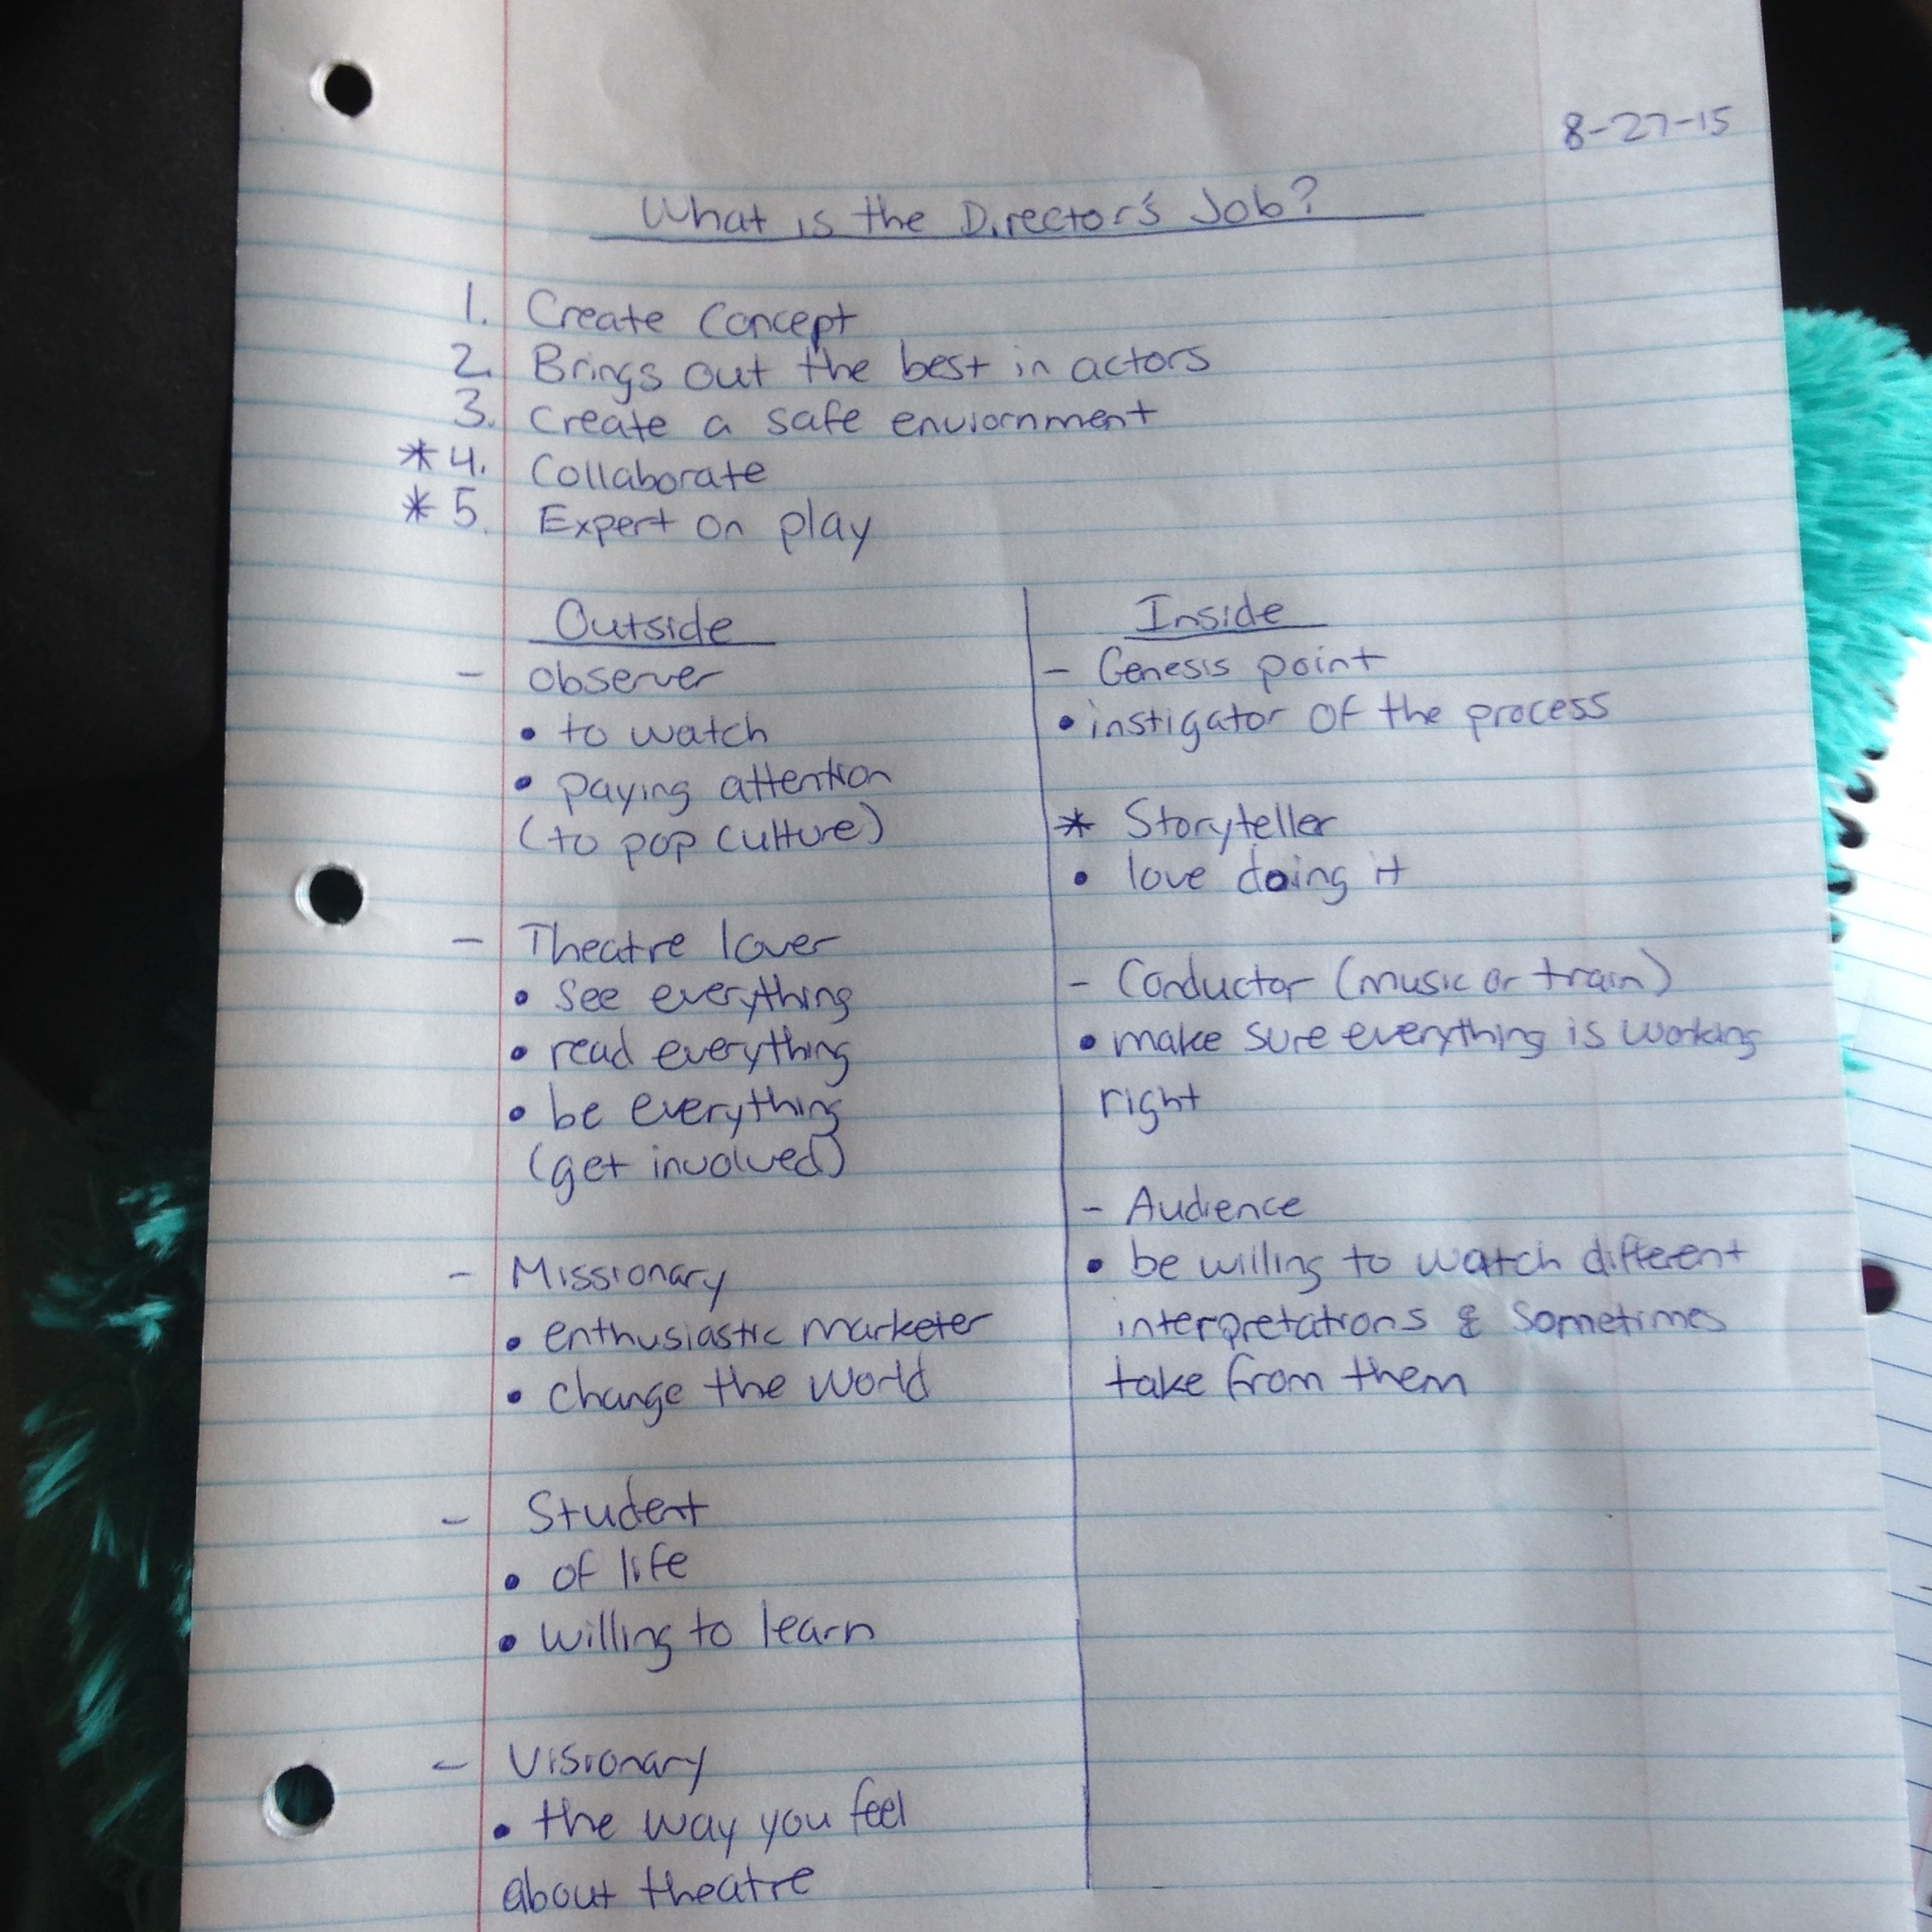 8-27-15
What is the Director's Job?
1. Create Concept
2. Brings out the best in actors
3. Create a safe enviornment
* 4. Collaborate
* 5. Expert on play
Outside
- observer
• to watch
• paying attention
(to pop culture)
- Theatre lover
• see everything
• read everything
• be everything
(get involved)
- Missionary
• enthusiastic marketer
• change the world
- Student
• of life
• willing to learn
- Visionary
• the way you feel
about theatre
Inside
- Genesis point
• instigator of the process
* Storyteller
• love doing it
- Conductor (music or train)
• make sure everything is working
right
- Audience
• be willing to watch different
interpretations & sometimes
take from them